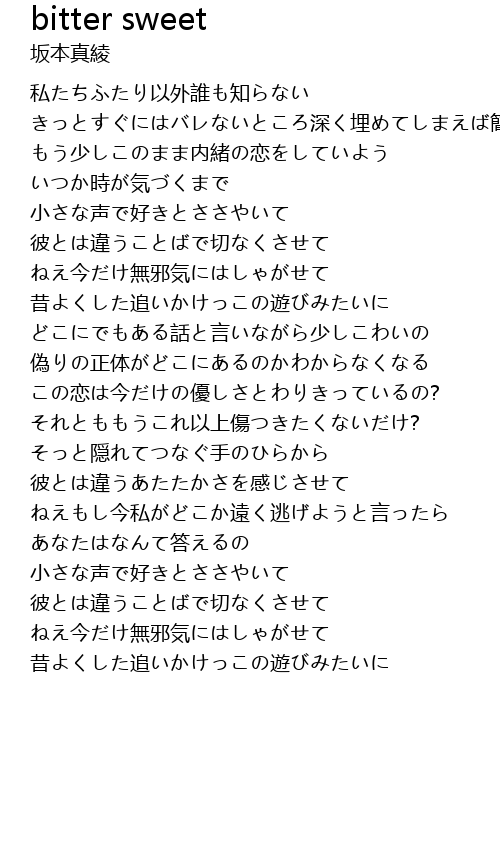 bitter sweet
坂本真綾
私たちふたり以外誰も知らない
きっとすぐにはバレないところ深く埋めてしまえば
もう少しこのまま内緒の恋をしていよう
いつか時が気づくまで
小さな声で好きとささやいて
彼とは違うことばで切なくさせて
ねえ今だけ無邪気にはしゃがせて
昔よくした追いかけっこの遊びみたいに
どこにでもある話と言いながら少しこわいの
偽りの正体がどこにあるのかわからなくなる
この恋は今だけの優しさとわりきっているの?
それとももうこれ以上傷つきたくないだけ?
そっと隠れてつなぐ手のひらから
彼とは違うあたたかさを感じさせて
ねえもし今私がどこか遠く逃げようと言ったら
あなたはなんて答えるの
小さな声で好きとささやいて
彼とは違うことばで切なくさせて
ねえ今だけ無邪気にはしゃがせて
昔よくした追いかけっこの遊びみたいに